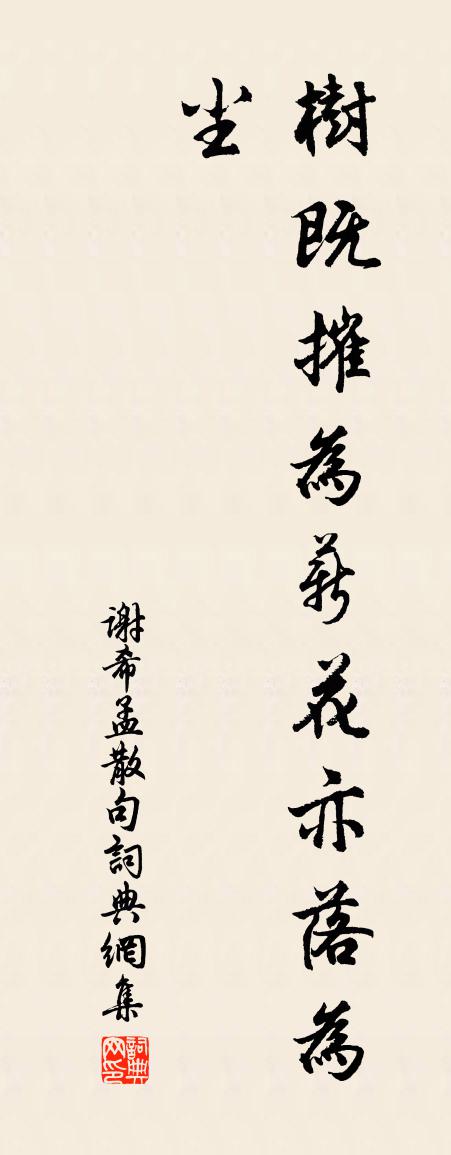 樹既摧為薪花亦落為
尘
谢希孟散句詞典網集
詞典网印